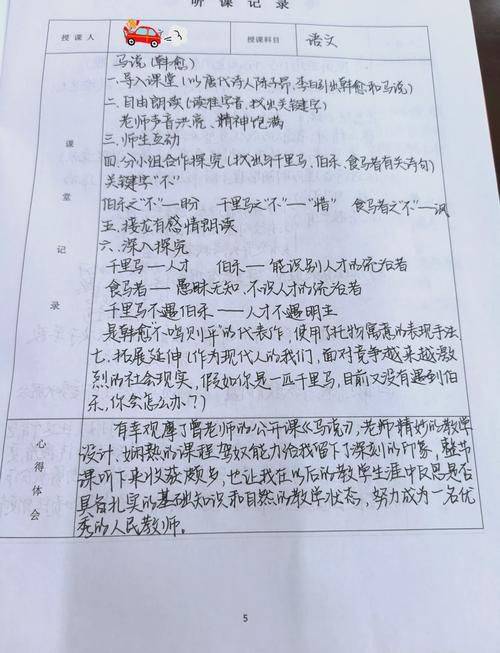 听课记录
授课人
授课科目
语文
课堂记录
马说(韩愈)
一.导入课堂(以唐代诗人陈子昂、李白引出韩愈和马说)
二.自由朗读(读准字音、找出关键字)
老师声音洪亮、精神饱满
三.师生互动
四.分小组合作探究(找出与千里马、伯乐、食马者有关语句)
关键字"不"
伯乐之"不"—盼 千里马之"不"—"惜" 食马者之"不"—讽
五.接龙有感情朗读
六.深入探究
千里马——人才 伯乐—能识别人才的统治者
食马者——愚昧无知、不识人才的统治者
千里马不遇伯乐——人才不遇明主
是韩愈"不鸣则平"的代表作,使用了托物寓意的表现手法
七.拓展延伸(作为现代人的我们,面对竞争越来越激
烈的社会现实,假如你是一匹千里马,目前又没有遇到伯
乐,你会怎么办?)
心得体会
有幸观摩了曾老师的公开课《马说》,老师精妙的教学
设计、娴熟的课程驾奴能力给我留下了深刻的印象,整节
课听下来收获颇多,也让我在以后的教学生涯中反思是否
具备扎实的基础知识和自然的教学状态,努力成为一名优
秀的人民教师。
5